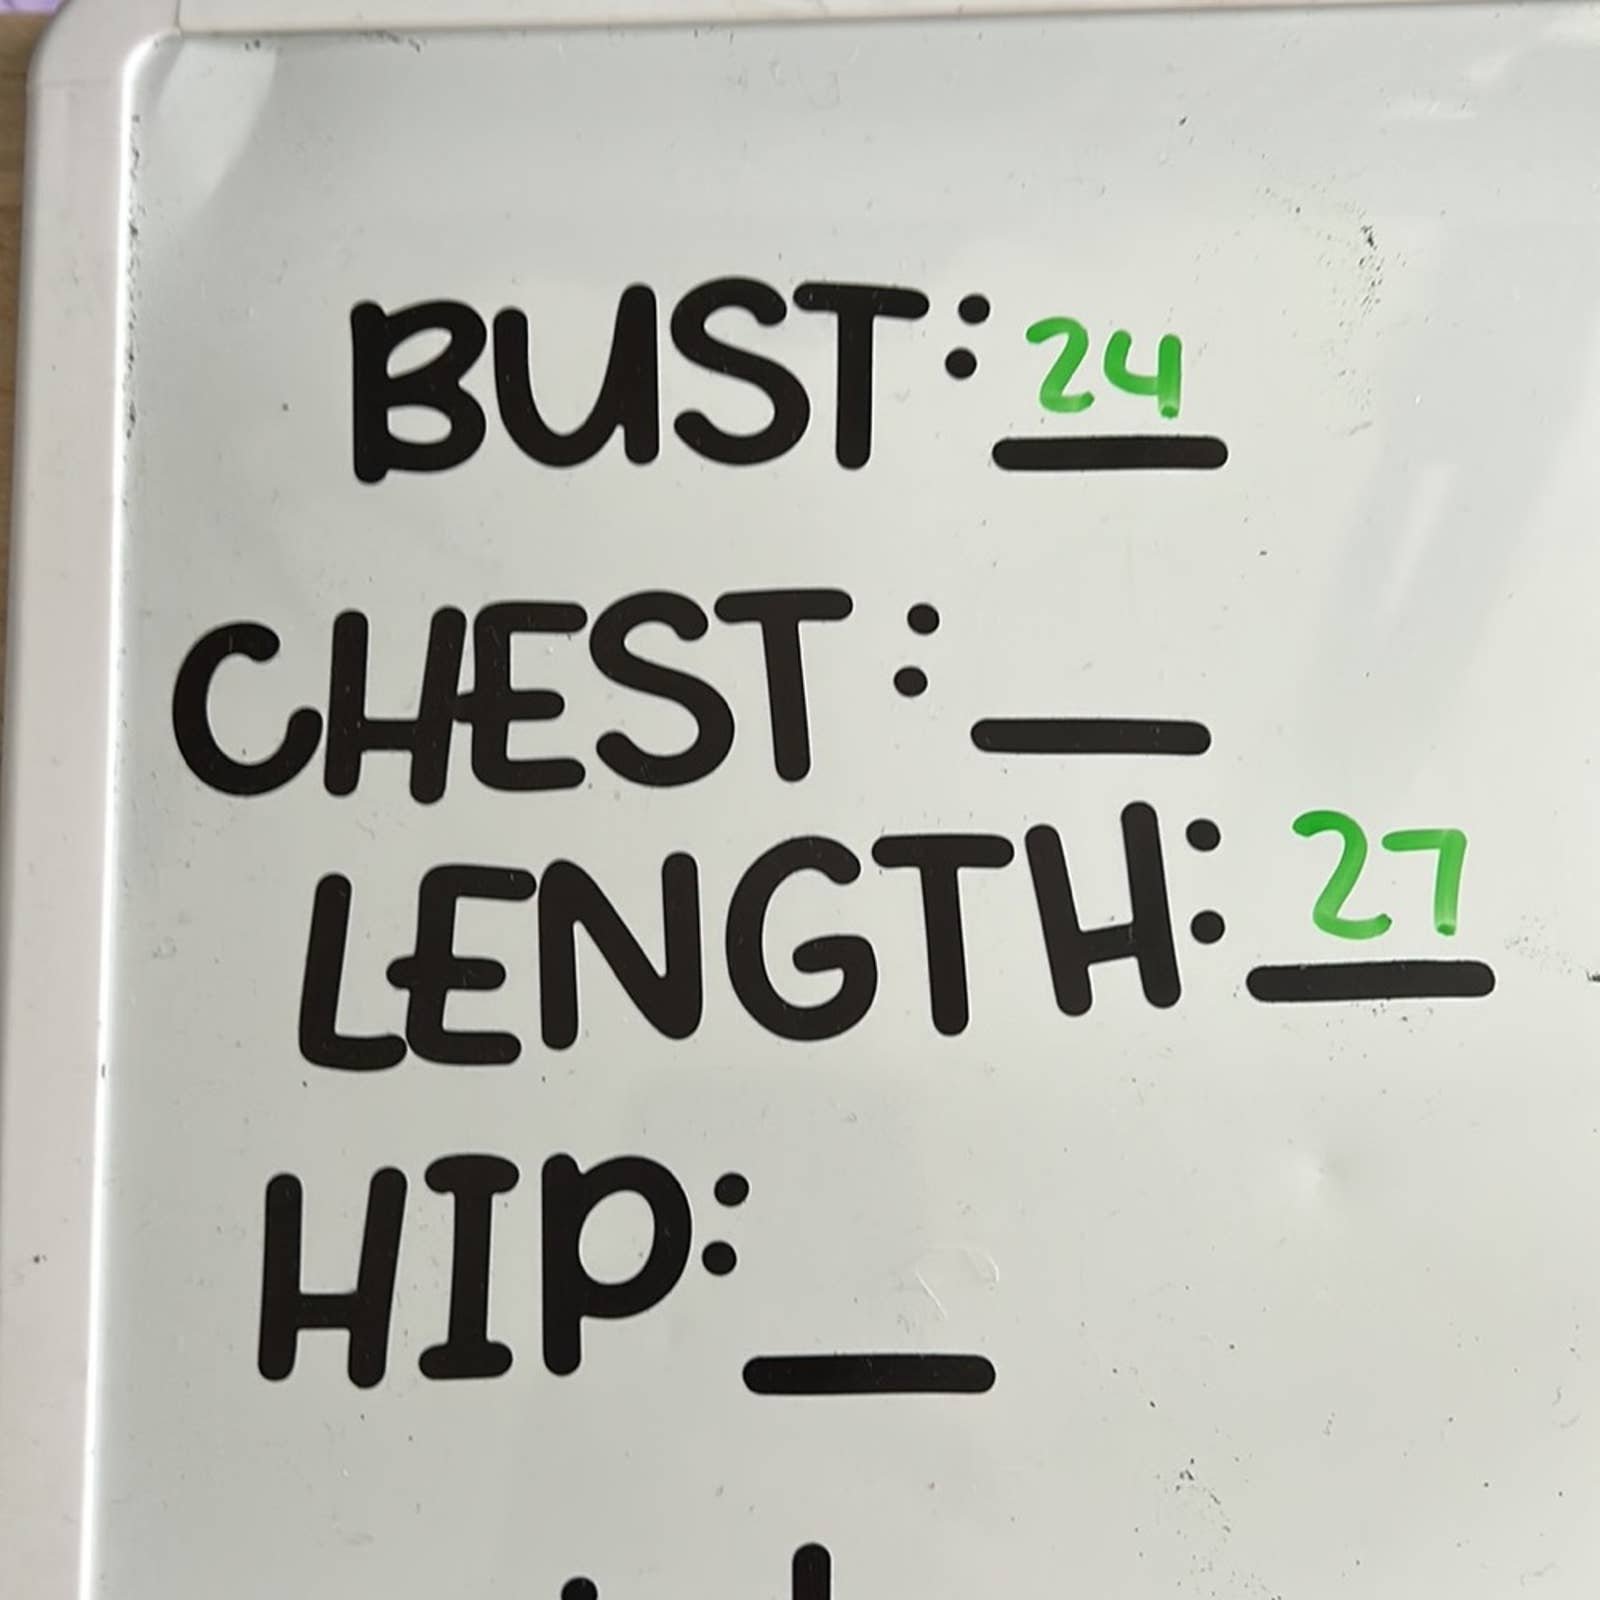 BUST: 24
CHEST: __
LENGTH: 27
HIP: __